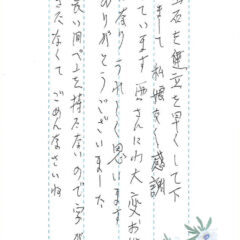 石も建立を早くして下
まして 私嬉しく感謝
ています 西さんにわ大変お
なり うれしく思います
ありがとうございました
長い間ペンを持たないので字が
きたなくて ごめんなさいね